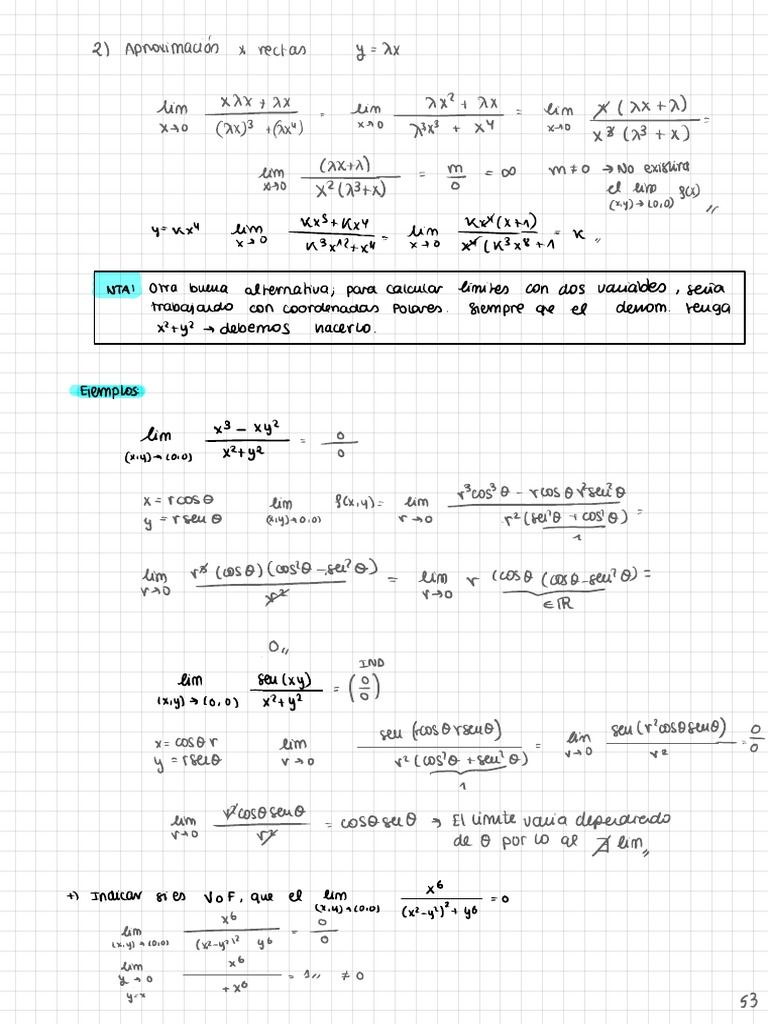 2) Aproximación x rectas y = λx
lim x→0 (xλx + λx)/((λx)³ + (λx⁴)) = lim x→0 (λx² + λx)/(λ³x³ + x⁴) = lim x→0 x(λx + λ)/(x³(λ³ + x)) =
lim x→0 (λx+λ)/(x²(λ³+x)) = m/0 = ∞ m≠0 → No existiria
el lim f(x)
(x,y)→(0,0)
y = Kx⁴ lim x→0 (Kx⁵ + Kx⁴)/(K³x¹² + x⁴) = lim x→0 Kx⁴(x+1)/(x⁴(K³x⁸ + 1 = K
NTA: Otra buena alternativa, para calcular limites con dos variables, seria
trabajando con coordenadas Polares. Siempre que el denom. tenga
x²+y² → debemos hacerlo.
Ejemplos:
lim (x,y)→(0,0) (x³ − xy²)/(x²+y²) = 0/0
x = r cos θ lim (x,y)→(0,0) f(x,y) = lim r→0 (r³cos³θ − r cos θ r²sen²θ)/(r²(sen²θ + cos²θ)) =
y = r sen θ 1
lim r→0 r³(cosθ)(cos²θ − sen²θ)/r² = lim r→0 r (cosθ (cosθ − sen²θ) =
∈ ℝ
0
IND
lim (x,y)→(0,0) sen(xy)/(x²+y²) = (0/0)
x = cosθ r lim r→0 sen(rcosθ rsenθ)/(r²(cos²θ + sen²θ)) = lim r→0 sen(r²cosθsenθ)/r² = 0/0
y = r senθ 1
lim r→0 r²cosθsenθ/r² = cosθsenθ → El limite varia dependiendo
de θ por lo q ∄ lim
+) Indicar si es V o F, que el lim (x,y)→(0,0) x⁶/((x²−y²)² + y⁶) = 0
lim (x,y)→(0,0) x⁶/((x²−y²)² y⁶) = 0/0
lim y→0 y=x x⁶/(+ x⁶) = 1 ≠ 0
53